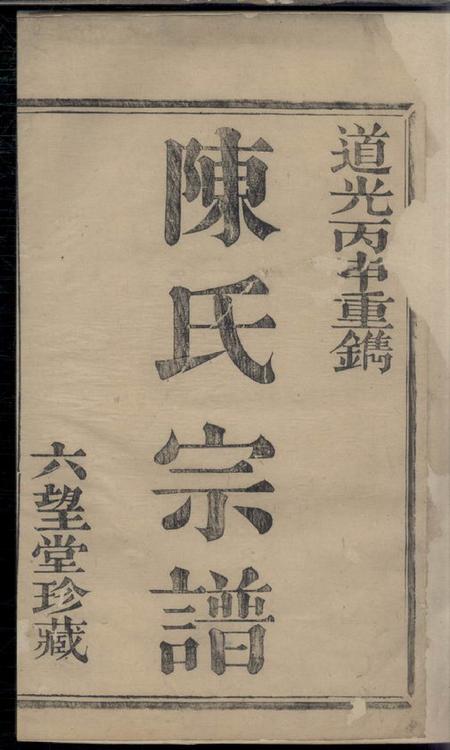 道光丙午重鐫
陳氏宗譜
六望堂珍藏